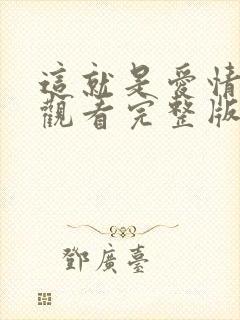 這就是愛情
觀看完整版
鄧廣臺